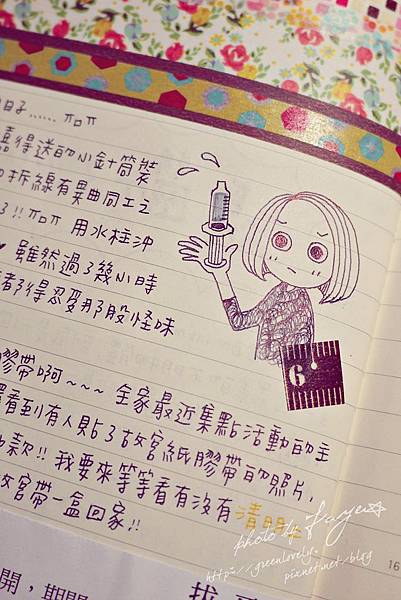 日子…… ㄫㄇㄫ
得送的小針筒裝
拆線有異曲同工之
了!! ㄫㄇㄫ 用水柱沖
雖然過了幾小時
都得忍受那股怪味
6
膠帶啊~~~ 全家最近集點活動的主
看到有人貼了故宮紙膠帶的照片,
款!! 我要來等等看有沒有清明
故宮帶一盒回家!!
photo by Faye
http://greenlovely.
pixnet.net/blog
16
開，期間